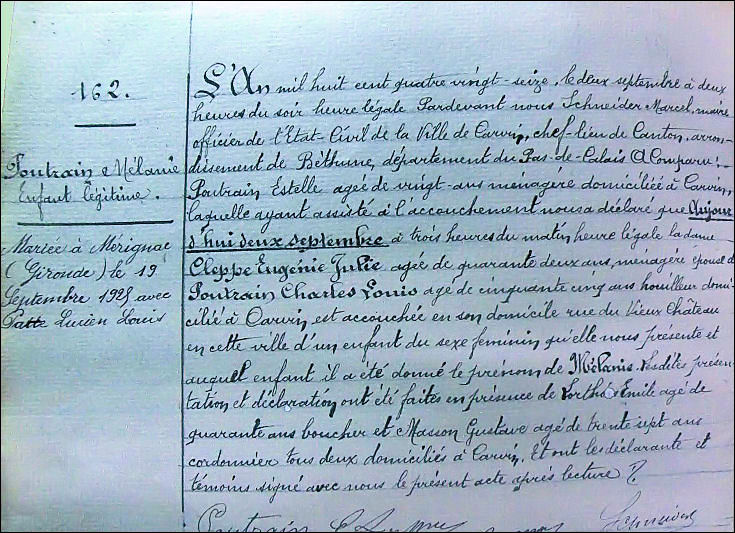 162.
Poutrain Mélanie
Enfant légitime.
Mariée à Mérignac
(Gironde) le 19
Septembre 1925 avec
Patte Lucien Louis
L'An mil huit cent quatre vingt-seize, le deux septembre à deux
heures du soir heure légale Pardevant nous Schneider Marcel, maire
officier de l'Etat-Civil de la Ville de Carvin, chef-lieu de Canton, arron-
dissement de Béthune, département du Pas-de-Calais A Comparu:
Poutrain Estelle agée de vingt-ans ménagère domiciliée à Carvin,
laquelle ayant assisté à l'accouchement nous a déclaré que Aujour
d'hui deux septembre à trois heures du matin heure légale la dame
Cleppe Eugénie Julie agée de quarante deux ans, ménagère épouse de
Poutrain Charles Louis agé de cinquante cinq ans houilleur domi-
cilié à Carvin est accouchée en son domicile rue du Vieux Château
en cette ville d'un enfant du sexe feminin qu'elle nous présente et
auquel enfant il a été donné le prénom de Mélanie. Lesdites présen-
tation et déclaration ont été faites en présence de Lorthé Emile agé de
quarante ans boucher et Masson Gustave agé de trente sept ans
cordonnier tous deux domiciliés à Carvin, Et ont les déclarante et
témoins signé avec nous le présent acte après lecture
Poutrain